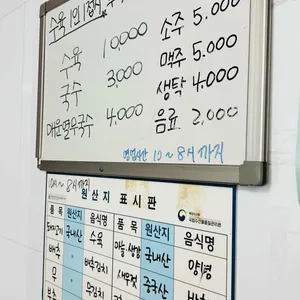 수육 1인 1접시
수육 10,000
국수 3,000
매운열무국수 4,000
소주 5,000
맥주 5,000
생탁 4,000
음료 2,000
영업시간 10~8시까지
10시~8시까지
원산지 표시판
음식명 품목 원산지 음식명 품목 원산지 음식명
돼지고기 국내산 수육 마늘 생강 국내산 양념
배추 배추김치 새우젓 중국산
무 무김치